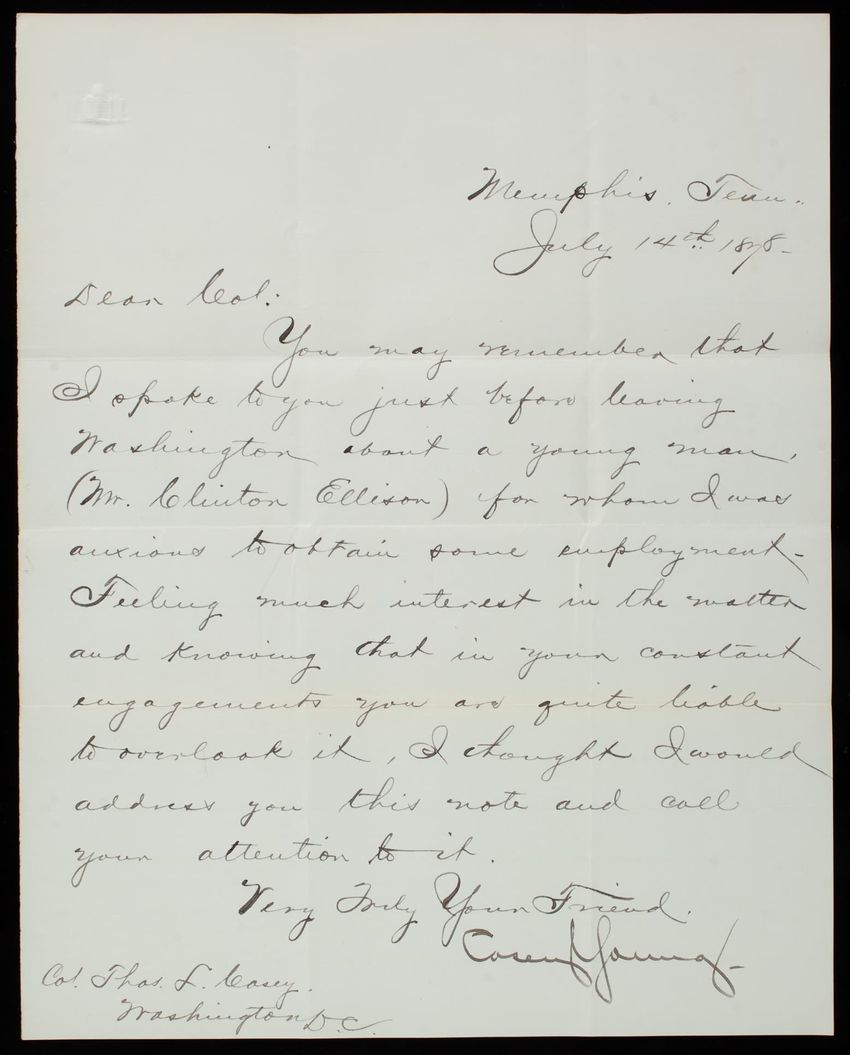 Memphis, Tenn.
July 14th 1878-
Dear Col:
You may remember that
I spoke to you just before leaving
Washington about a young man,
(Mr. Clinton Ellison) for whom I was
anxious to obtain some employment-
Feeling much interest in the matter
and knowing that in your constant
engagements you are quite liable
to overlook it, I thought I would
address you this note and call
your attention to it.
Very Truly Your Friend.
Casey Young-
Col. Thos. L. Casey.
Washington D.C.